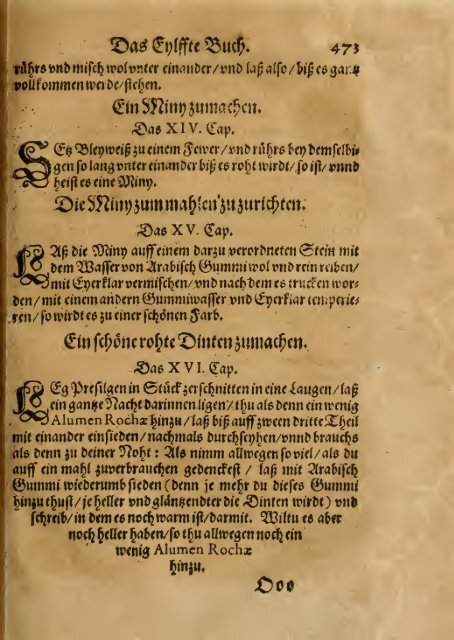 Das Eylffte Buch. 473
rührs vnd misch wol vnter einander/vnd laß also/biß es gantz
vollkommen werde/stehen.
Ein Miny zumachen.
Das XIV. Cap.
SEtz Bleyweiß zu einem Fewer/vnd rührs bey demselbi-
gen so lang vnter einander biß es roht wirdt/so ist/vnnd
heist es eine Miny.
Die Miny zum mahlen zuzurichten.
Das XV. Cap.
LAß die Miny auff einem darzu verordneten Stein mit
dem Wasser von Arabisch Gummi wol vnd rein reiben/
mit Eyerklar vermischen/vnd nach dem es trucken wor-
den/mit einem andern Gummiwasser vnd Eyerklar temperie-
ren/so wirdt es zu einer schönen Farb.
Ein schöne rohte Dinten zumachen.
Das XVI. Cap.
LEg Presilgen in Stück zerschnitten in eine Laugen/laß
ein gantze Nacht darinnen ligen/thu als denn ein wenig
Alumen Rochæ hinzu/laß biß auff zween dritte Theil
mit einander einsieden/nachmals durchseyhen/vnnd brauchs
als denn zu deiner Noht: Als nimm allwegen so viel/als du
auff ein mahl zuverbrauchen gedenckest/ laß mit Arabisch
Gummi wiederumb sieden (denn je mehr du dieses Gummi
hinzu thust/je heller vnd gläntzendter die Dinten wirdt) vnd
schreib/in dem es noch warm ist/darmit. Wiltu es aber
noch heller haben/so thu allwegen noch ein
wenig Alumen Rochæ
hinzu.
Ooo